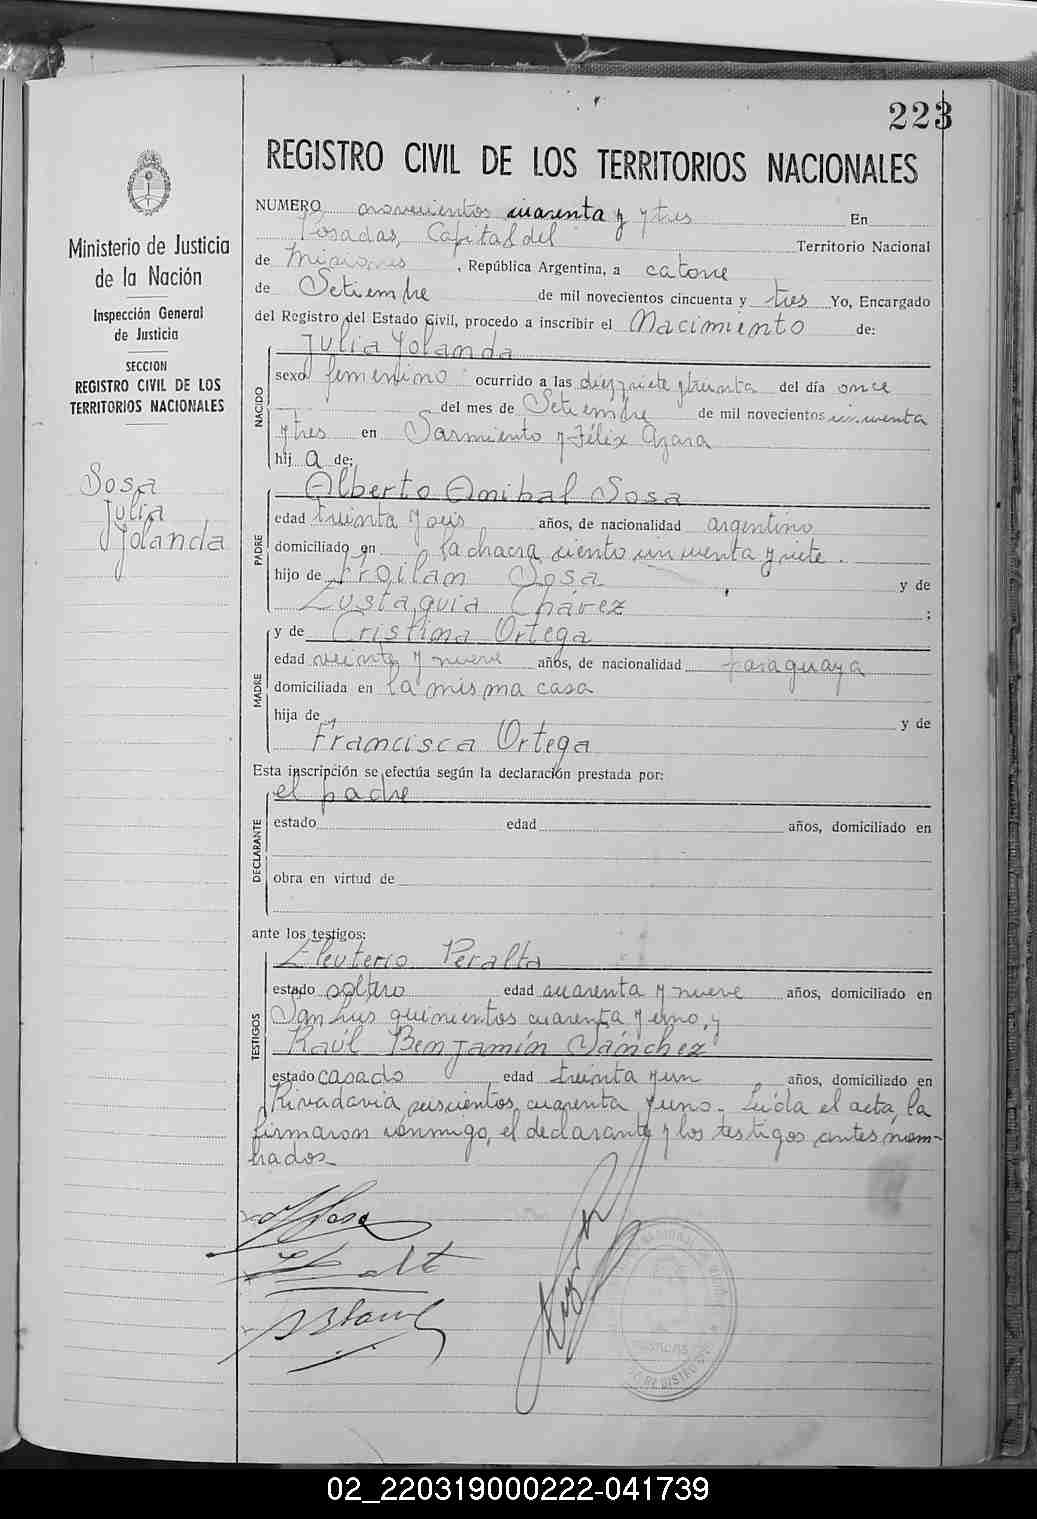 223
REGISTRO CIVIL DE LOS TERRITORIOS NACIONALES
Ministerio de Justicia
de la Nación
Inspección General
de Justicia
SECCION
REGISTRO CIVIL DE LOS
TERRITORIOS NACIONALES
Sosa
Julia
Yolanda
NUMERO novecientos cuarenta y ytres En
Posadas, Capital del Territorio Nacional
de Misiones, República Argentina, a catorce
de Setiembre de mil novecientos cincuenta y tres Yo, Encargado
del Registro del Estado Civil, procedo a inscribir el Nacimiento de:
NACIDO
Julia Yolanda
sexo femenino ocurrido a las diez y siete y treinta del día once
del mes de Setiembre de mil novecientos cincuenta
y tres en Sarmiento y Félix Azara
hij a de:
PADRE
Alberto Anibal Sosa
edad treinta y seis años, de nacionalidad argentino
domiciliado en la chacra ciento cincuenta y siete.
hijo de Froilan Sosa y de
Eustaquia Chávez ;
MADRE
y de Cristina Ortega
edad veinte y nueve años, de nacionalidad paraguaya
domiciliada en la misma casa
hija de y de
Francisca Ortega
Esta inscripción se efectúa según la declaración prestada por:
DECLARANTE
el padre
estado edad años, domiciliado en
obra en virtud de
ante los testigos:
TESTIGOS
Eleuterio Peralta
estado soltero edad cuarenta y nueve años, domiciliado en
San Luis quinientos cuarenta y uno, y
Raúl Benjamín Sánchez
estado casado edad treinta y un años, domiciliado en
Rivadavia seiscientos cuarenta y uno. Leída el acta, la
firmaron conmigo, el declarante y los testigos antes nom-
brados.
02_220319000222-041739